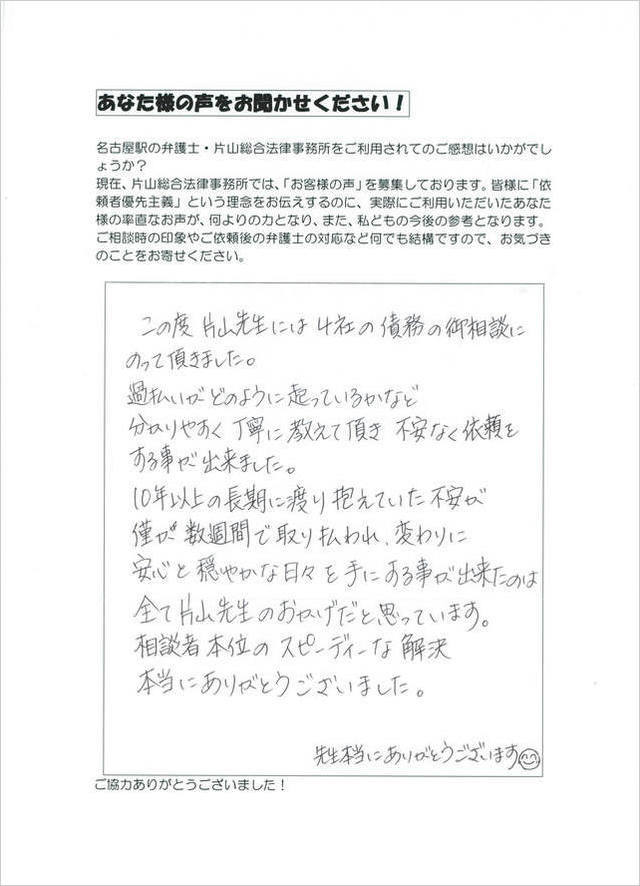 あなた様の声をお聞かせください！
名古屋駅の弁護士・片山総合法律事務所をご利用されてのご感想はいかがでし
ょうか？
現在、片山総合法律事務所では、「お客様の声」を募集しております。皆様に「依
頼者優先主義」という理念をお伝えするのに、実際にご利用いただいたあなた
様の率直なお声が、何よりの力となり、また、私どもの今後の参考となります。
ご相談時の印象やご依頼後の弁護士の対応など何でも結構ですので、お気づき
のことをお寄せください。
この度 片山先生には 4社の 債務の御相談に
のって頂きました。
過払いが どのように 起っているかなど
分かりやすく 丁寧に 教えて頂き 不安なく 依頼を
する事が 出来ました。
10年以上の 長期に渡り 抱えていた 不安が
僅か 数週間で 取り払われ、変わりに
安心と 穏やかな日々を 手にする事が 出来たのは
全て 片山先生の おかげだと 思っています。
相談者 本位の スピーディーな 解決
本当に ありがとうございました。
先生本当にありがとうございます😊
ご協力ありがとうございました！